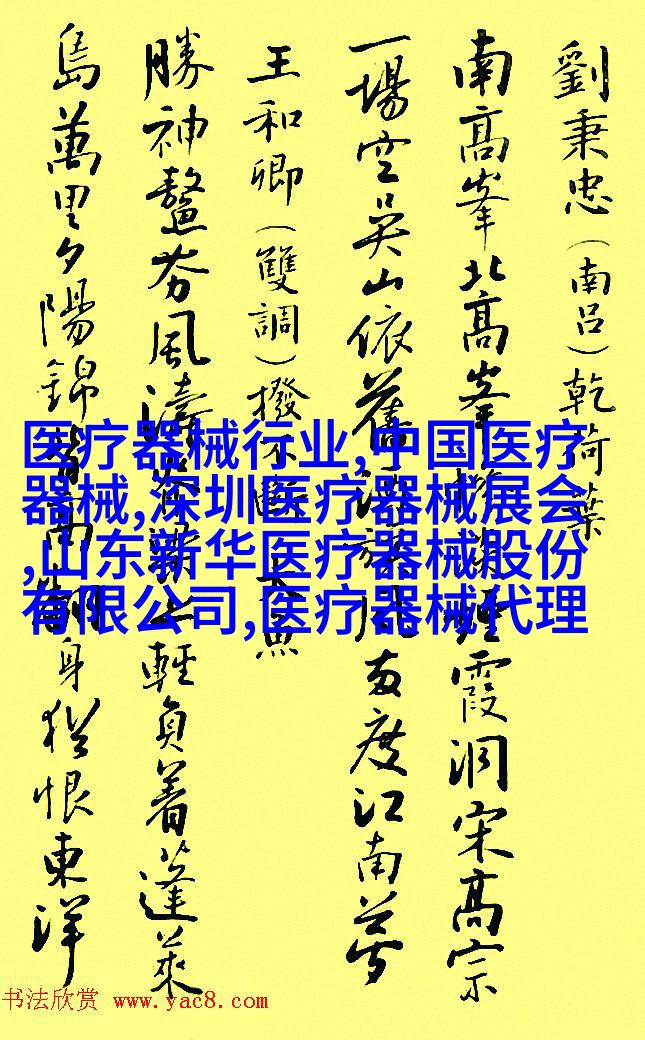 劉秉忠(南呂)乾荷葉
南高峯北高峯煙霞洞宋高宗
一場空吳山依舊酒旗風兩度江南夢
王和卿(雙調)撥不斷 大魚
勝神鰲夯風濤脊梁上輕負着蓬萊
島萬里夕陽錦背高翻身猶恨東洋
医疗器械行业,中国医疗
器械,深圳医疗器械展会
,山东新华医疗器械股份
有限公司,医疗器械代理
书法欣赏 www.yac8.com